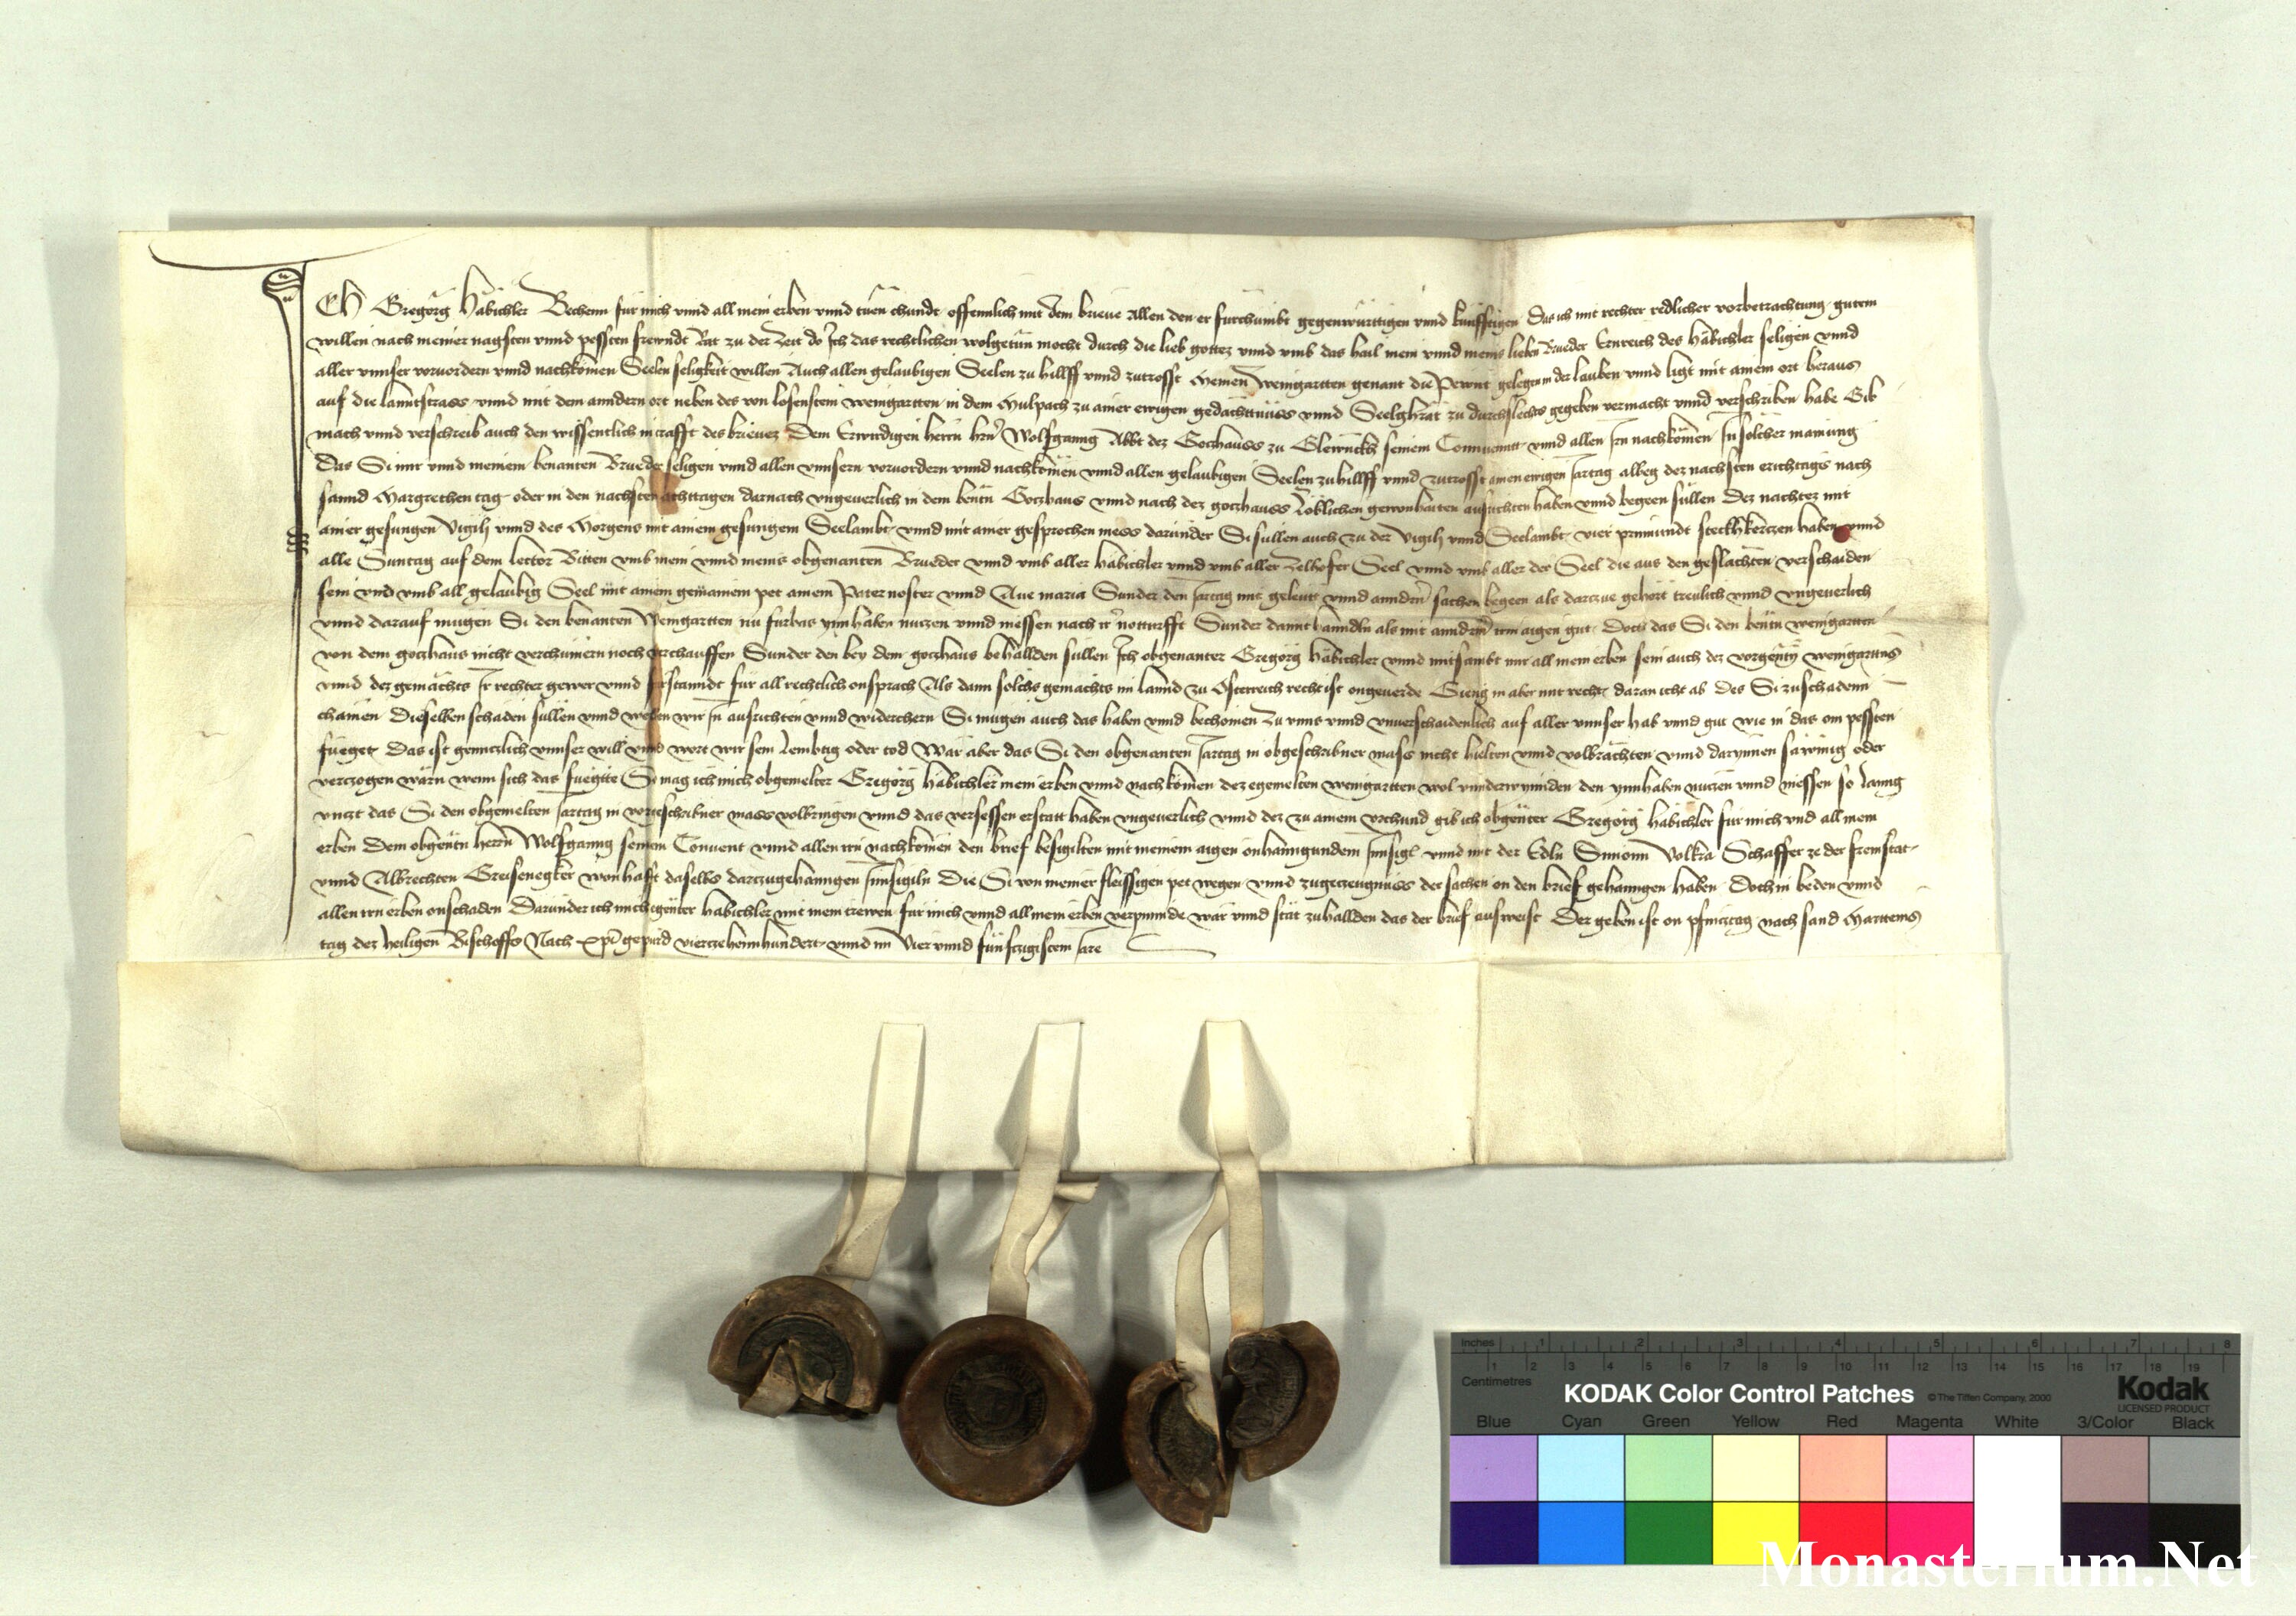 Ich Gregorg Häbichler Bechenn für mich vnnd all mein erben vnnd tuen chundt offennlich mit dem brieue Allen den er fürchumbt gegenwürttigen vnnd künfftigen Das ich mit rechter redlicher vorbetrachtung gutem
willen nach meiner nagsten vnnd pessten frewndt Rat zu der Zeit do Ich das rechtlichen wolgetün mocht durch die lieb gottez vnnd vmb das hail mein vnnd meins lieben Brueder Ernreich des Häbichler seligen vnnd
aller vnnser voruordern vnnd nachkömen Seelen seligkeit willen Auch allen gelaubigen Seelen zu hillff vnnd zutrosst Meinen Weingartten genant die Pewnt gelegen in der lauben vnnd ligt mit ainem ort heraus
auf die lanntstrass vnnd mit dem anndern ort neben des von losenstein weingartten in dem Mulpach zu ainer ewigen gedächttnüss vnnd Seelgkrät zu durchslechts gegeben vermacht vnnd verschriben habe Gib
mach vnnd verschreib auch den wissentlich in crafft des brieuez Dem Erwirdigen herrn hern Wolfganng Abbt dez Gotzhauss zu Glewnickh seinem Conuennt vnnd allen Irn nachkömen In sölcher mainung
Das Si mir vnnd meinem benanten Brueder seligen vnnd allen vnnsern voruordern vnnd nachkömen vnnd allen gelaubigen Seelen zu hillff vnnd zutrosst ainen ewigen Jartag albeg dez nachsten erichtags nach
sannd Margrethen tag oder in den nachsten achttagen darnach vngeuerlich in dem bentn Gotzhaus vnnd nach dez gotzhauss löblichen gewonhaiten ausrichten haben vnnd begeen süllen Dez nachtez mit
ainer gesungen Vigily vnnd des Morgens mit ainem gesungem Seelambt vnnd mit ainer gesprochen mess darunder Si süllen auch zu der Vigily vnnd Seelambt vier prinnundt steckhkerczen haben vnnd
alle Suntag auf dem lector Bitten vmb mein vnnd meins obgenanten Brueder vnnd vmb aller Häbichler vnnd vmb aller Zelhofer Seel vnnd vmb aller der Seel die aus den geslächten verschaiden
sein vnd vmb all gelaubig Seel mit ainem gemainem pet ainem Pater noster vnnd Aue maria Sunder den Jartag mit geleutt vnnd anndern sachen begeen als darczue gehört treulich vnnd vngeuerlich
vnnd darauf mügen Si den benanten Weingartten nu fürbas ynnhaben nutzen vnnd niessen nach ir notturfft Sunder damit hanndln als mit anndern irm aigen gut Doch das Si den bentn weingartten
von dem gotzhaus nicht verchumern noch verchauffen Sunder den bey dem gotzhaus behallden süllen Ich obgenanter Gregorg Häbichler vnnd mitsambt mir all mein erben sein auch dez vorgenantn weingarttns
vnnd dez gemächts Ir rechter gewer vnnd fürstanndt für all rechtlich onsprach Als dann solchs gemachts im lannd zu Österreich recht ist ongeuerde Gieng in aber mit recht daran icht ab Des Si zuschadenn
chämen Dieselben schaden süllen vnnd wellen wir In ausrichten vnnd widerchern Si mügen auch das haben vnnd bechömen Zu vnns vnnd vnuerschaidenlich auf aller vnnser hab vnnd gut wie in das am pessten
füeget Das ist genntzlich vnnser will vnnd wort wir sein lembtig oder tod Wär aber das Si den obgenanten Jartag in obgeschribner mass nicht hielten vnnd volbrächten vnnd darynnen säwmig oder
verczogen wärn wenn sich das fuegtte So mag ich mich obgemelter Gregorg Häbichler mein erben vnnd nachkömen dez egemelten weingartten wol vnnderwynnden den ynnhaben nutzen vnnd niessen so lanng
vnczt das Si den obgemelten Jartag in vorgeschribner mass volbringen vnnd das versessen erstatt haben vngeuerlich vnnd dez zu ainem vrchund gib ich obgenter Gregorg Häbichler für mich vnd all mein
erben Dem obgentn herrn Wolfganng seinem Conuent vnnd allen irn nachkömen den brief besigilten mit meinem aigen onhanngundem Innsigl vnnd mit der Edln Simonn Volkra Schaffer ze der freinstat
vnnd Albrechten Greisenegker wonhafft daselbs darczugehanngen Innsigiln Die Si von meiner fleissigen pet wegen vnnd zugeczeugnüss der sachen on den brief gehanngen haben Doch in beden vnnd
allen irn erben onschaden Darunder ich mich egenter Häbichler mit mein trewen für mich vnnd all mein erben verpinnde wär vnnd stät zuhallden das der brief ausweist Der geben ist on phintztag nach sand Marttems
tag dez heiligen Bischoffs Nach xpi gepurd vierczehennhundert vnnd im Vier vnnd fünfczigistem Jare
Inches 1 2 3 4 5 6 7 8
1 2 3 4 5 6 7 8 9 10 11 12 13 14 15 16 17 18 19
Centimetres
KODAK Color Control Patches © The Tiffen Company, 2000 Kodak
LICENSED PRODUCT
Blue Cyan Green Yellow Red Magenta White 3/Color Black
Monasterium.Net